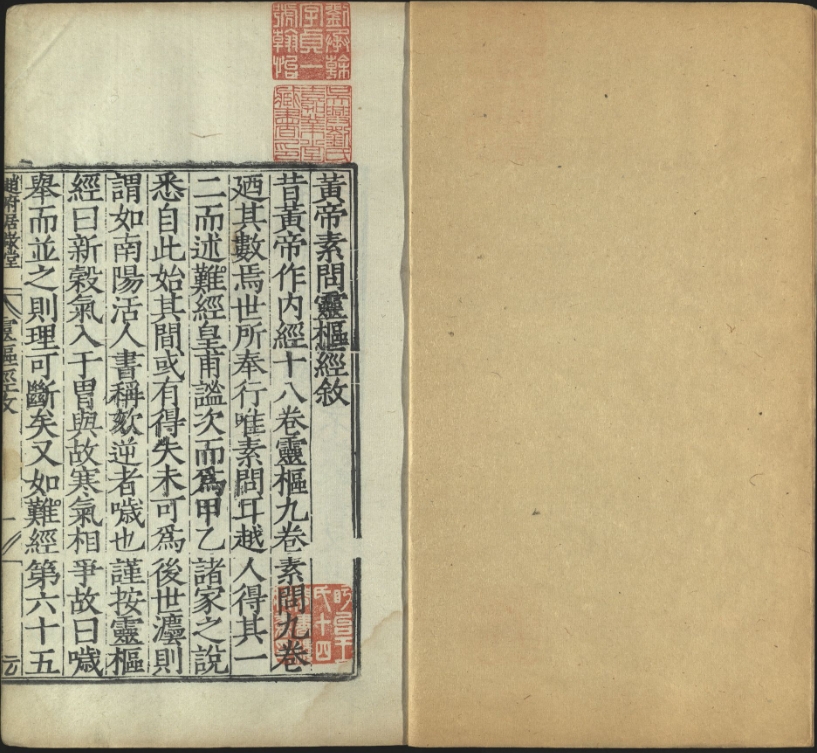 黃帝素問靈樞經敘
昔黃帝作内經十八卷靈樞九卷素問九卷
廼其數焉世所奉行唯素問耳越人得其一
二而述難經皇甫謐次而為甲乙諸家之說
悉自此始其間或有得失未可為後世灋則
謂如南陽活人書稱欬逆者噦也謹按靈樞
經曰新穀氣入于胃與故寒氣相爭故曰噦
舉而並之則理可斷矣又如難經第六十五
趙府居敬堂
靈樞經文
一
元
劉承幹
字貞一
號翰怡
吳興劉氏
嘉業堂
藏書印
氏十四